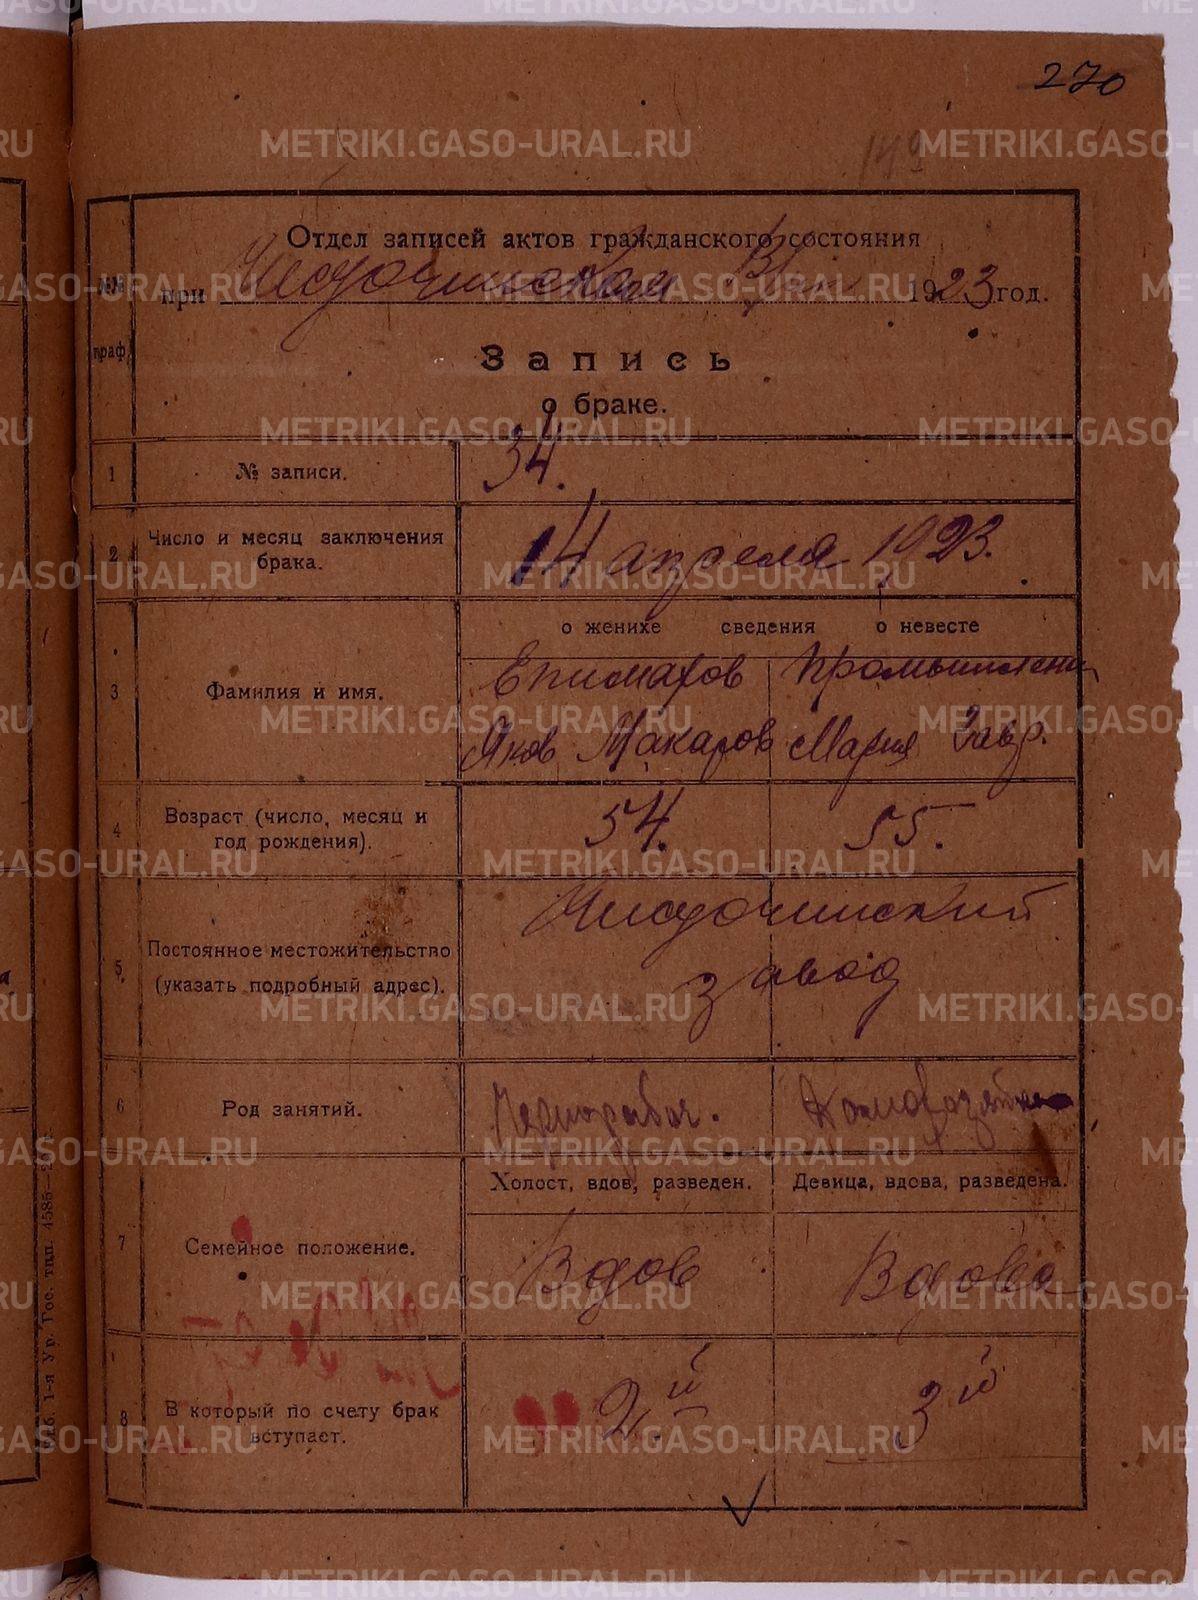 270
149
Отдел записей актов гражданского состояния
№№ граф
при 1923 год.
Запись
о браке.
1 № записи. 34.
2 Число и месяц заключения брака. 14 апреля 1923.
о женихе сведения о невесте
3 Фамилия и имя.
Епимахов Промышленн
Яков Макаров Мария Завр.
4 Возраст (число, месяц и год рождения). 54. 55.
5 Постоянное местожительство (указать подробный адрес).
завод
6 Род занятий. Чернорабоч. Домохозяйка
Холост, вдов, разведен. Девица, вдова, разведена.
7 Семейное положение. Вдов Вдова
8 В который по счету брак вступает. 2й 3й
1-я Ур. Гос. тип. 4585—2
METRIKI.GASO-URAL.RU